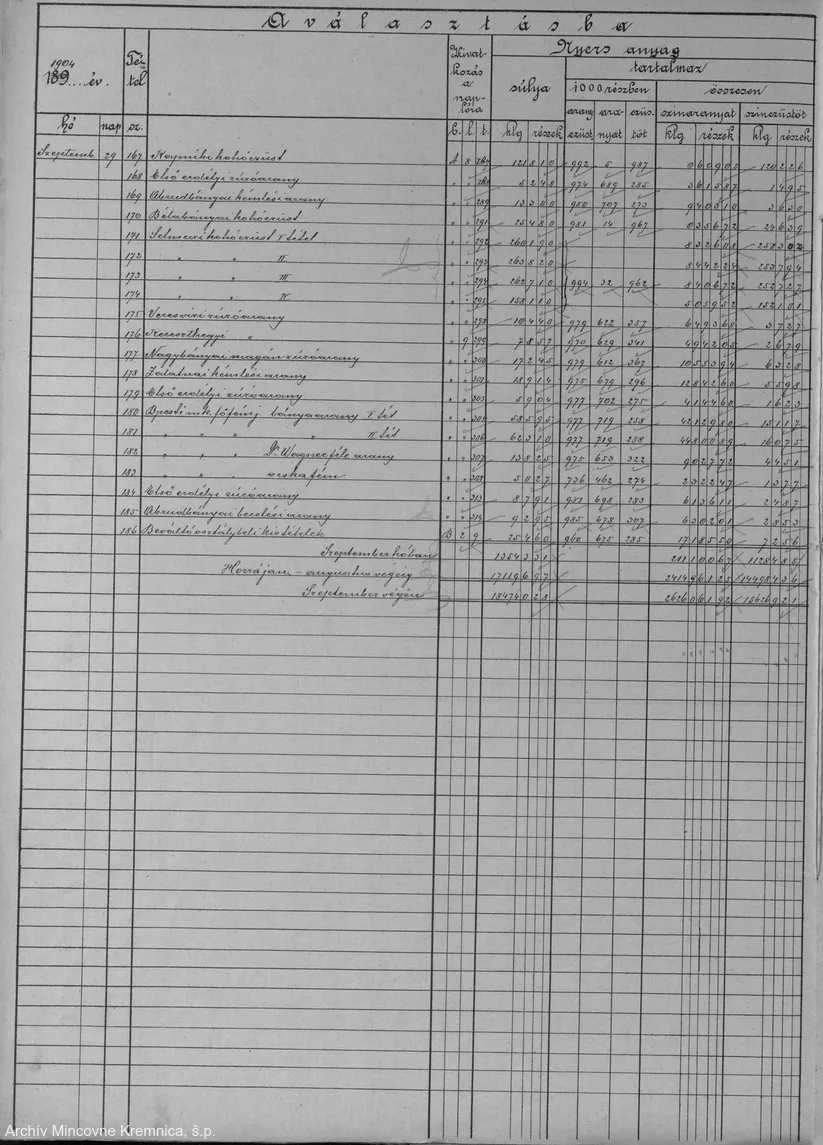 A választásba
1904
189....év.
Tétel
Hivatkozás a naplóra
Nyers anyag
tartalmaz
súlya 1000 részben összesen
arany ezüst aranyat ezüstöt színaranyat színezüstöt
hó nap sz. C. l. t. klg részek klg részek klg részek
Szeptemb. 29 167 kohóezüst A 8 121 810 992 5 987 0 60905 120 226
168 Első erdélyi záróarany 5 248 974 689 285 3 61587 1 495
169 Abrudbányai kémlési arany 289 13 300 980 707 273 9 40310 3 630
170 Bélabányai kohóezüst 291 25 480 981 14 967 0 35672 24 639
171 Selmeci kohóezüst I tétel 292 260 190 8 32608 250 302
172 " " II 293 263 820 8 44224 253 794
173 " " III 294 262 710 994 32 962 8 40672 252 727
174 " " IV 295 158 110 5 05952 152 101
175 Veresvizi záróarany 298 10 440 979 622 357 6 49368 3 727
176 Kereszthegyi " 9 299 7 857 970 629 341 4 94205 2 679
177 Nagybányai magán záróarany 300 17 245 979 612 367 10 55394 6 328
178 Zalatnai kémlész arany 301 18 914 975 679 296 12 84260 5 598
179 Első erdélyi záróarany 303 5 904 977 702 275 4 14460 1 623
180 Bpesti m.k. főfémj bányaarany I tét 305 58 595 977 719 258 42 12980 15 117
181 " " " II tét 306 62 310 977 719 258 44 80089 16 075
182 " " " Dr Wagner féle arany 307 13 825 975 653 322 9 02772 4 451
183 " " " ocskafém 308 5 027 736 462 274 2 32247 1 377
184 Első erdélyi záróarany 313 8 791 981 698 283 6 13611 2 487
185 Abrudbányai becslési arany 314 9 295 985 678 307 6 30201 2 853
186 Beváltó osztálybeli kis tételek B 2 9 25 460 960 675 285 17 18550 7 256
Szeptember hóban 1354 331 211 10067 1128 485
Hozzá jan. - augusztus végéig 17119 697 2414 96125 14498 436
Szeptember végén 18474 028 2626 06192 15626 921
Archív Mincovne Kremnica, š.p.